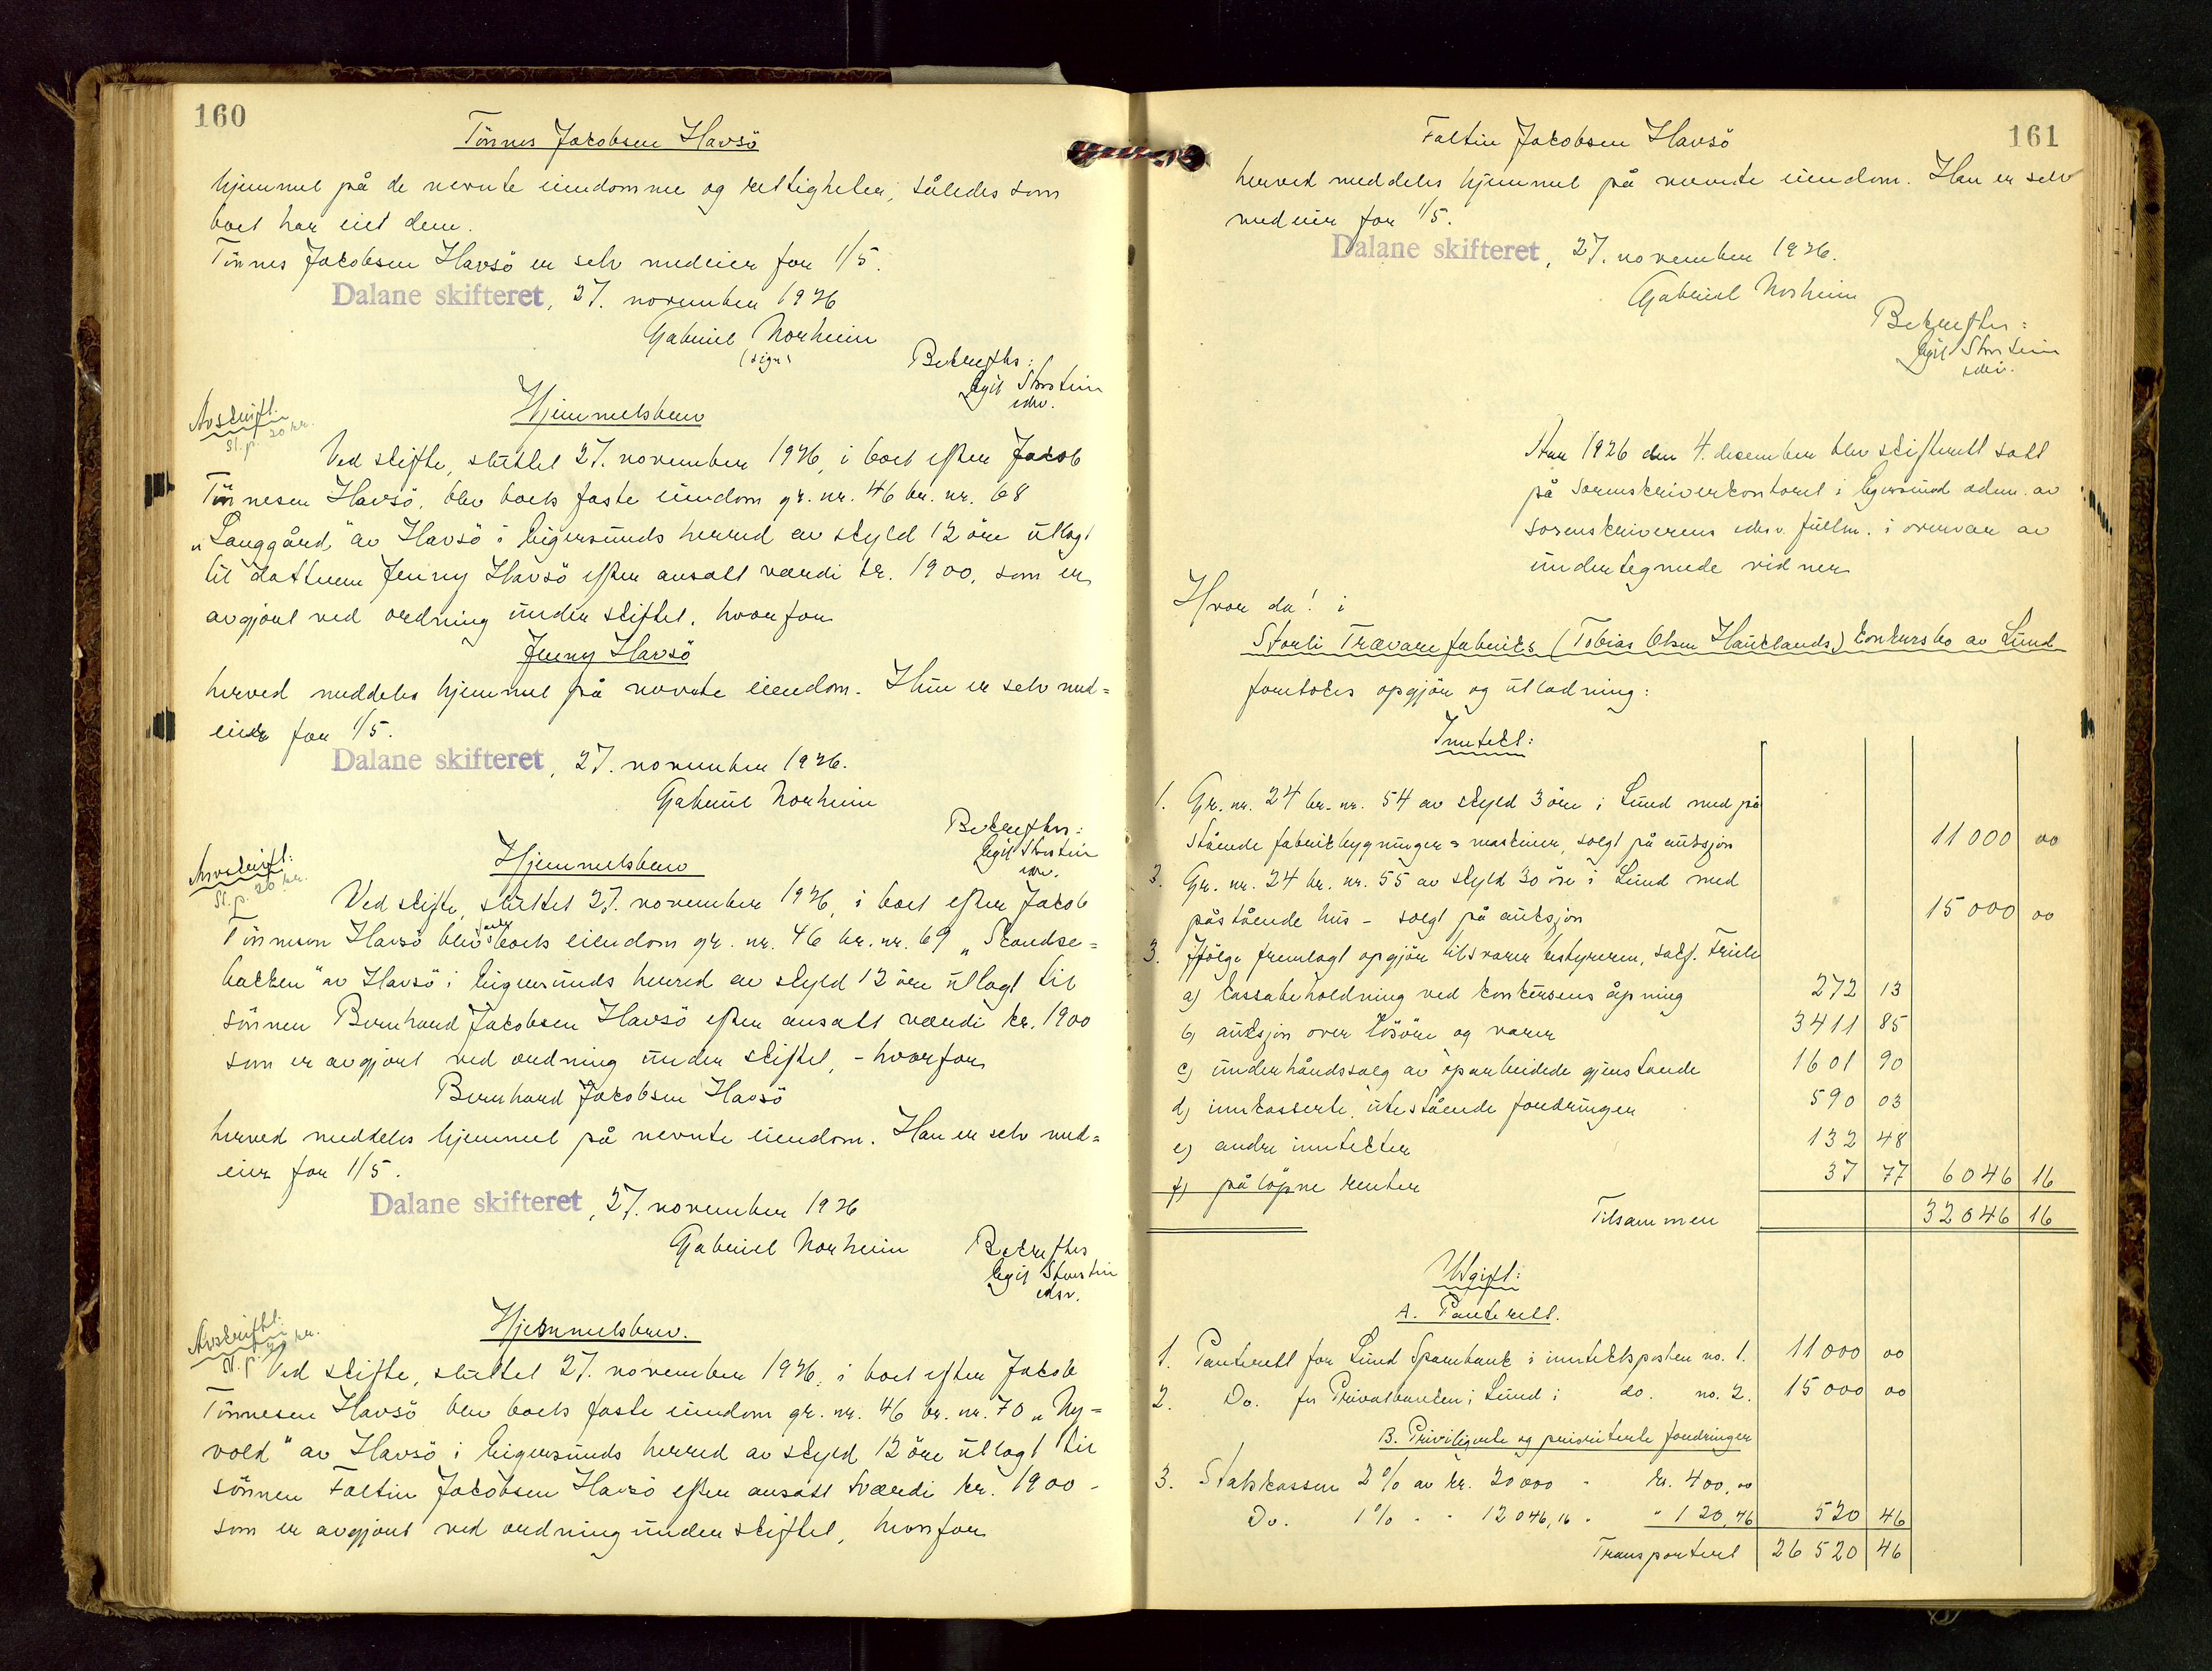 160
Tönnes Jakobsen Havsö
hjemmel på de nevnte eiendomme og rettigheter, således som
boet har eiet dem.
Tönnes Jakobsen Havsö er selv medeier for 1/5.
Dalane skifteret, 27. november 1926
Gabriel Norheim
(sign)
Bekreftes:
Egil Storstein
edsv.
Avskrift.
St.p. 20 kr.
Hjemmelsbrev
Ved skifte, sluttet 27. november 1926, i boet efter Jacob
Tönnesen Havsö, blev boets faste eiendom gr. nr. 46 br. nr. 68
„Langgård" av Havsö i Eigersunds herred av skyld 12 öre utlagt
til datteren Jenny Havsö efter ansatt værdi kr. 1900, som er
avgjort ved ordning under skiftet, hvorfor
Jenny Havsö
herved meddeles hjemmel på nevnte eiendom. Hun er selv med=
eier for 1/5.
Dalane skifteret, 27. november 1926.
Gabriel Norheim
Bekreftes:
Egil Storstein
edsv.
Avskrift:
St.p. 20 kr.
Hjemmelsbrev
Ved skifte, sluttet 27. november 1926, i boet efter Jakob
Tönnesen Havsö blev boets faste eiendom gr. nr. 46 br. nr. 69 „Skandse=
bakken" av Havsö i Eigersunds herred av skyld 12 öre utlagt til
sönnen Bernhard Jakobsen Havsö efter ansatt værdi kr. 1900
som er avgjort ved ordning under skiftet, - hvorfor
Bernhard Jakobsen Havsö
herved meddeles hjemmel på nevnte eiendom. Han er selv med=
eier for 1/5.
Dalane skifteret, 27. november 1926
Gabriel Norheim
Bekreftes
Egil Storstein
edsv.
Avskrift:
St.p. 20 kr.
Hjemmelsbrev.
Ved skifte, sluttet 27. november 1926, i boet efter Jakob
Tönnesen Havsö blev boets faste eiendom gr. nr. 46 br. nr. 70 „Ny=
vold" av Havsö i Eigersunds herred av skyld 12 öre utlagt til
sönnen Faltin Jakobsen Havsö efter ansatt værdi kr. 1900 -
som er avgjort ved ordning under skiftet, hvorfor
161
Faltin Jakobsen Havsö
herved meddeles hjemmel på nevnte eiendom. Han er selv
medeier for 1/5.
Dalane skifteret, 27. november 1926.
Gabriel Norheim
Bekreftes:
Egil Storstein
edsv.
Aar 1926 den 4. desember blev skifterett satt
på sorenskriverkontoret i Egersund adm. av
sorenskriverens edsv. fullm. i overvær av
undertegnede vidner
Hvor da! i
Storli Trævarefabriks (Tobias Olsen Hauklands) konkursbo av Lund
foretokes opgjör og utlodning:
Inntekt:
1. Gr. nr. 24 br. nr. 54 av skyld 3 öre i Lund med på
stående fabrikbygninger & maskiner, solgt på auksjon 11 000 00
2. Gr. nr. 24 br. nr. 55 av skyld 30 öre i Lund med
påstående hus - solgt på auksjon 15 000 00
3. Ifölge fremlagt opgjör tilsvarer bestyreren, sakf. Friele
a) kassabeholdning ved konkursens åpning 272 13
b) auksjon over lösöre og varer 3411 85
c) underhåndssalg av oparbeidede gjenstande 1601 90
d) innkasserte, utestående fordringer 590 03
e) andre inntekter 132 48
f) påløpne renter 37 77 6046 16
Tilsammen 32 046 16
Utgift:
A. Panterett.
1. Panterett for Lund Sparebank i inntektsposten no. 1. 11 000 00
2. Do. for Privatbanken i Lund i do. no. 2. 15 000 00
B. Priviligerte og prioriterte fordringer
3. Statskassen 2 % av kr. 20 000 - kr. 400,00
Do. 1 % - - 12 046,16 - " 120,46 520 46
Transportert 26 520 46